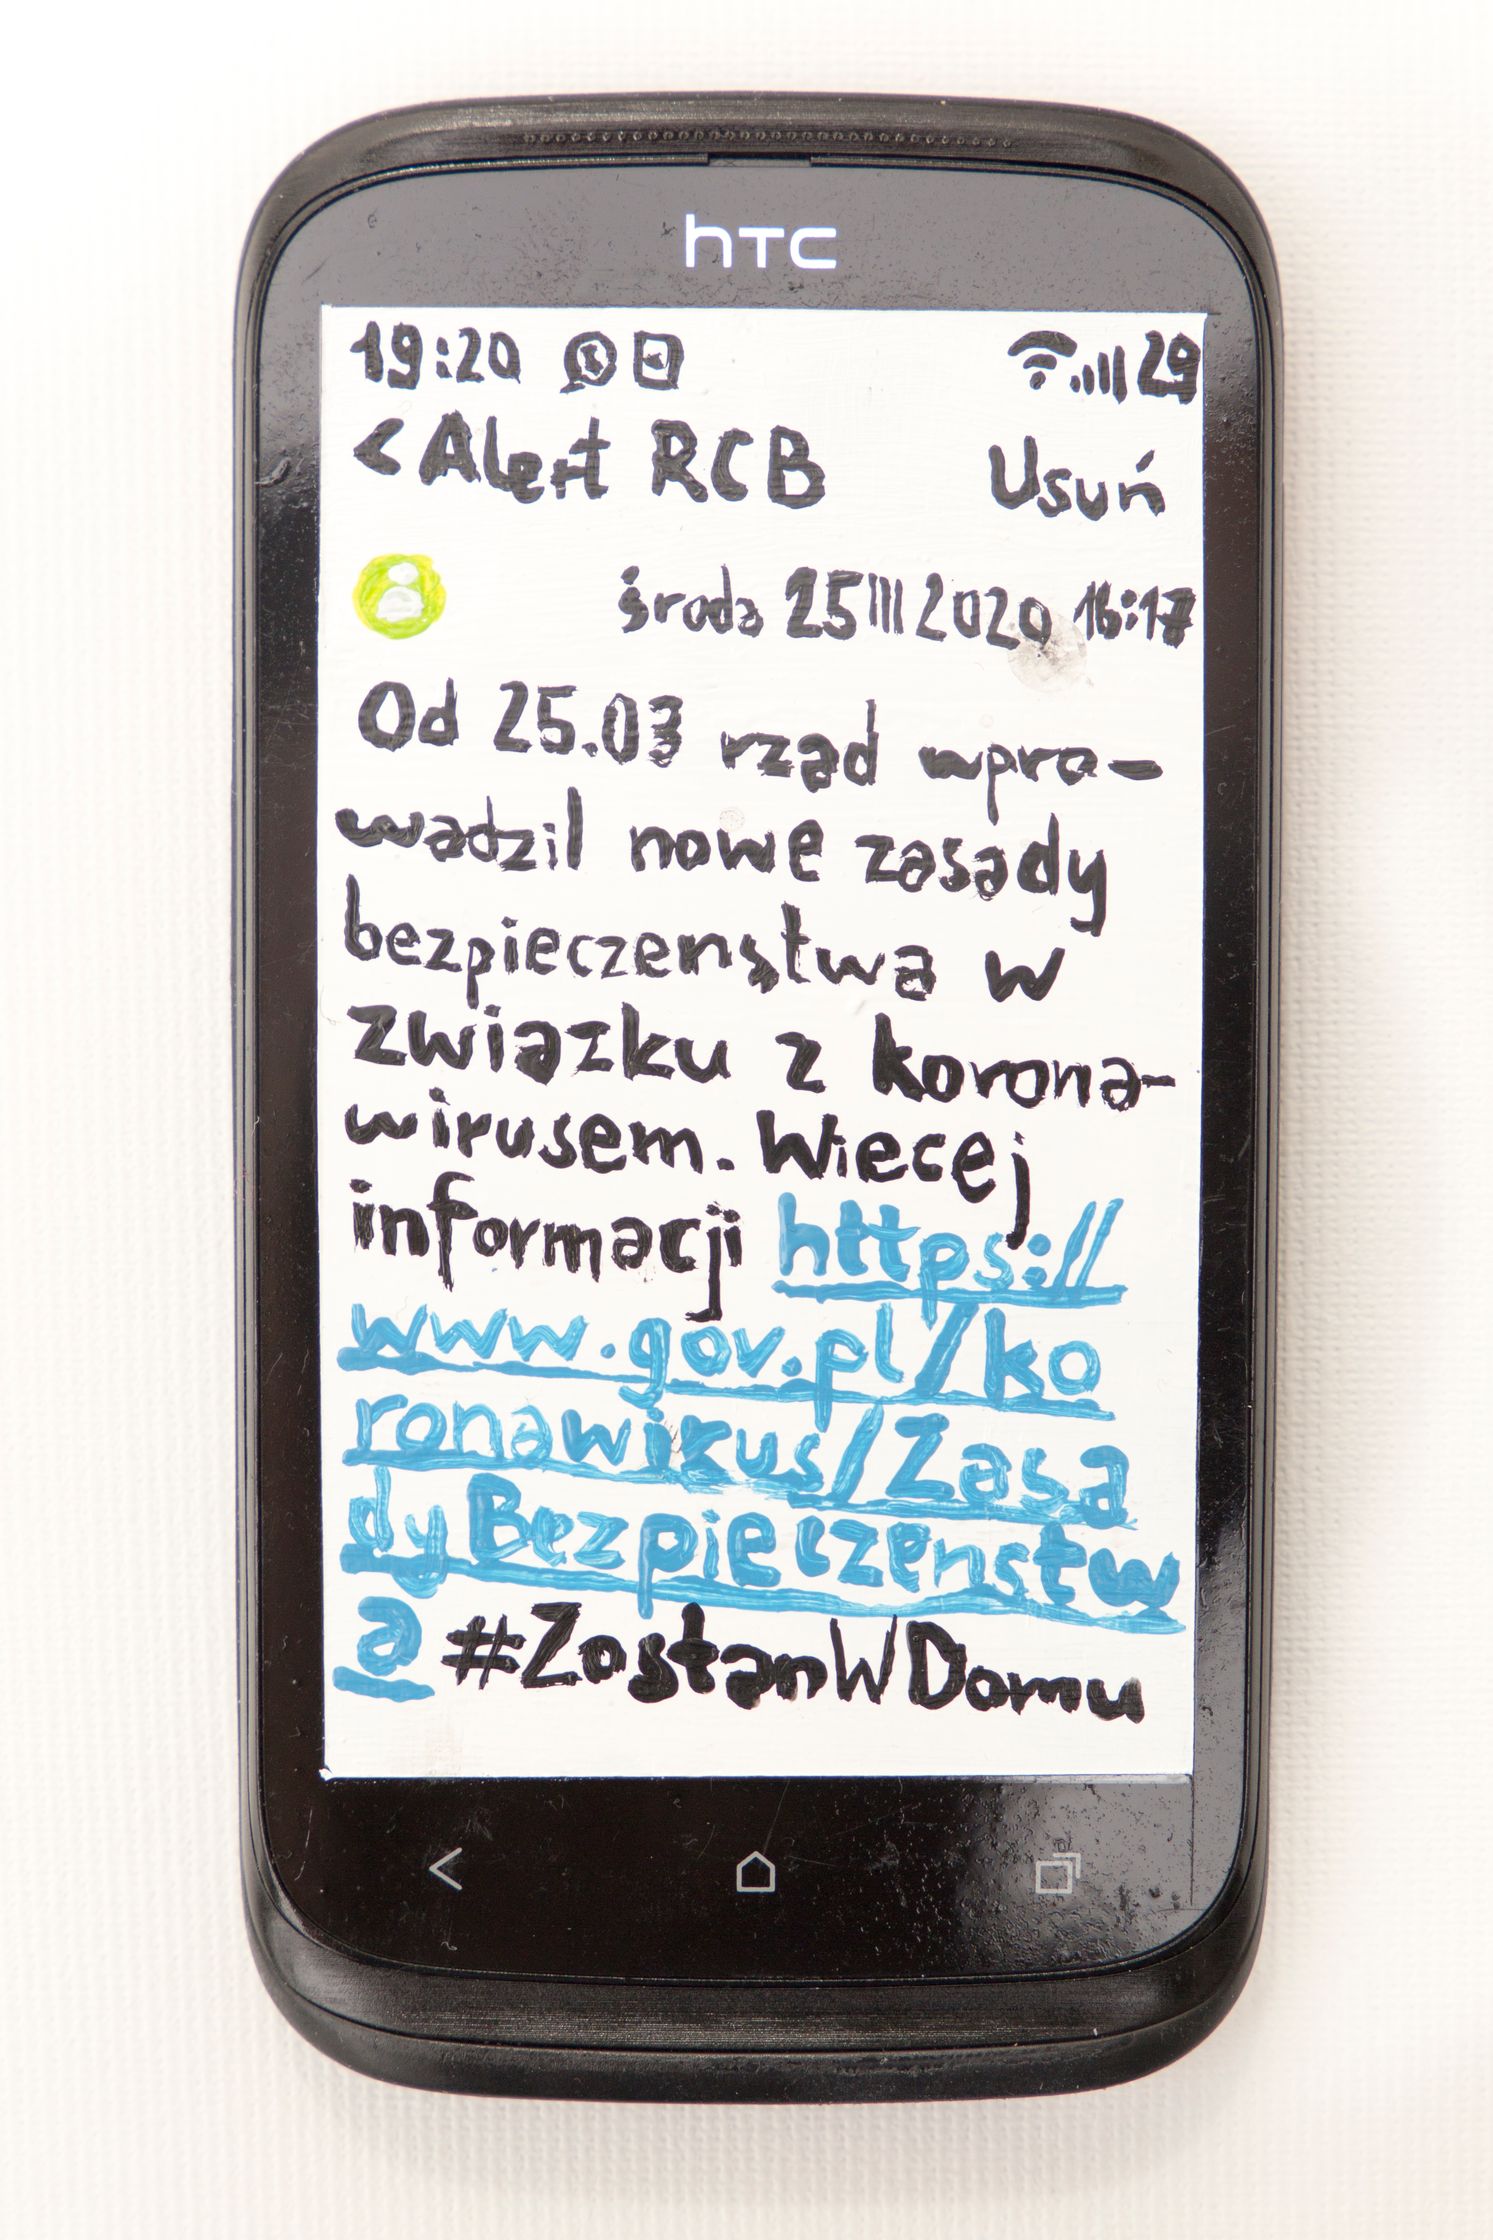 htc
19:20 29
< Alert RCB Usuń
środa 25 III 2020 16:17
Od 25.03 rzad wpro-
wadzil nowe zasady
bezpieczenstwa w
zwiazku z korona-
wirusem. Wiecej
informacji https://
www.gov.pl/ko
ronawirus/Zasa
dyBezpieczenstw
a #ZostanWDomu